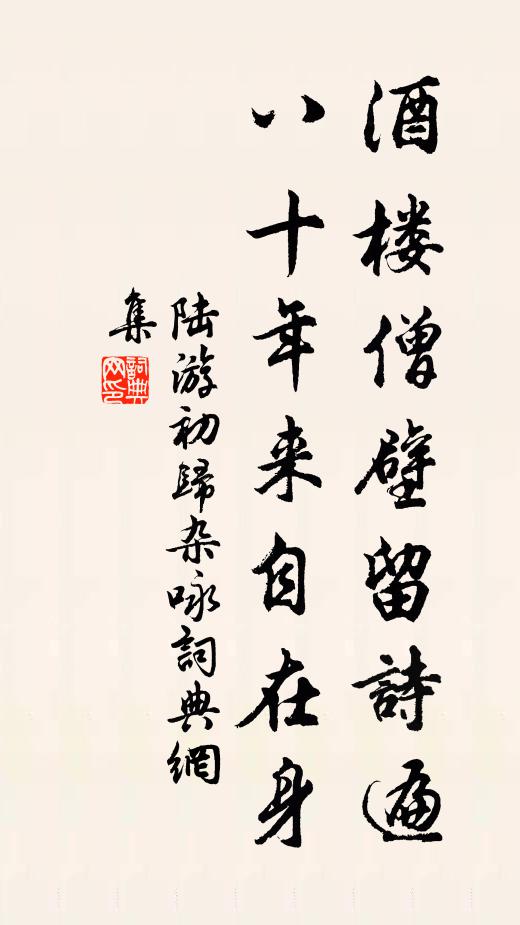 酒楼僧壁留詩遍
八十年来自在身
陆游初歸杂咏詞典網
集
詞典网印